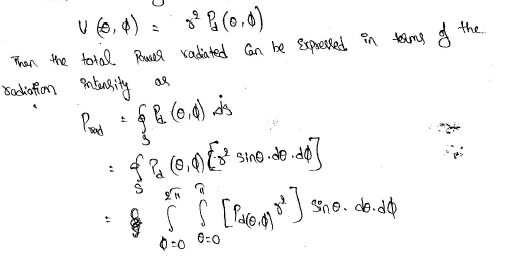 U (θ, φ) = r² Pd (θ, φ)
Then the total Power radiated Can be Expressed in terms of the
radiation intensity as
Prad = ∮S Pd (θ, φ) ds
= ∮S Pd (θ, φ) [r² sinθ . dθ . dφ]
= ∫φ=0^2π ∫θ=0^π [Pd(θ, φ) r²] sinθ. dθ. dφ